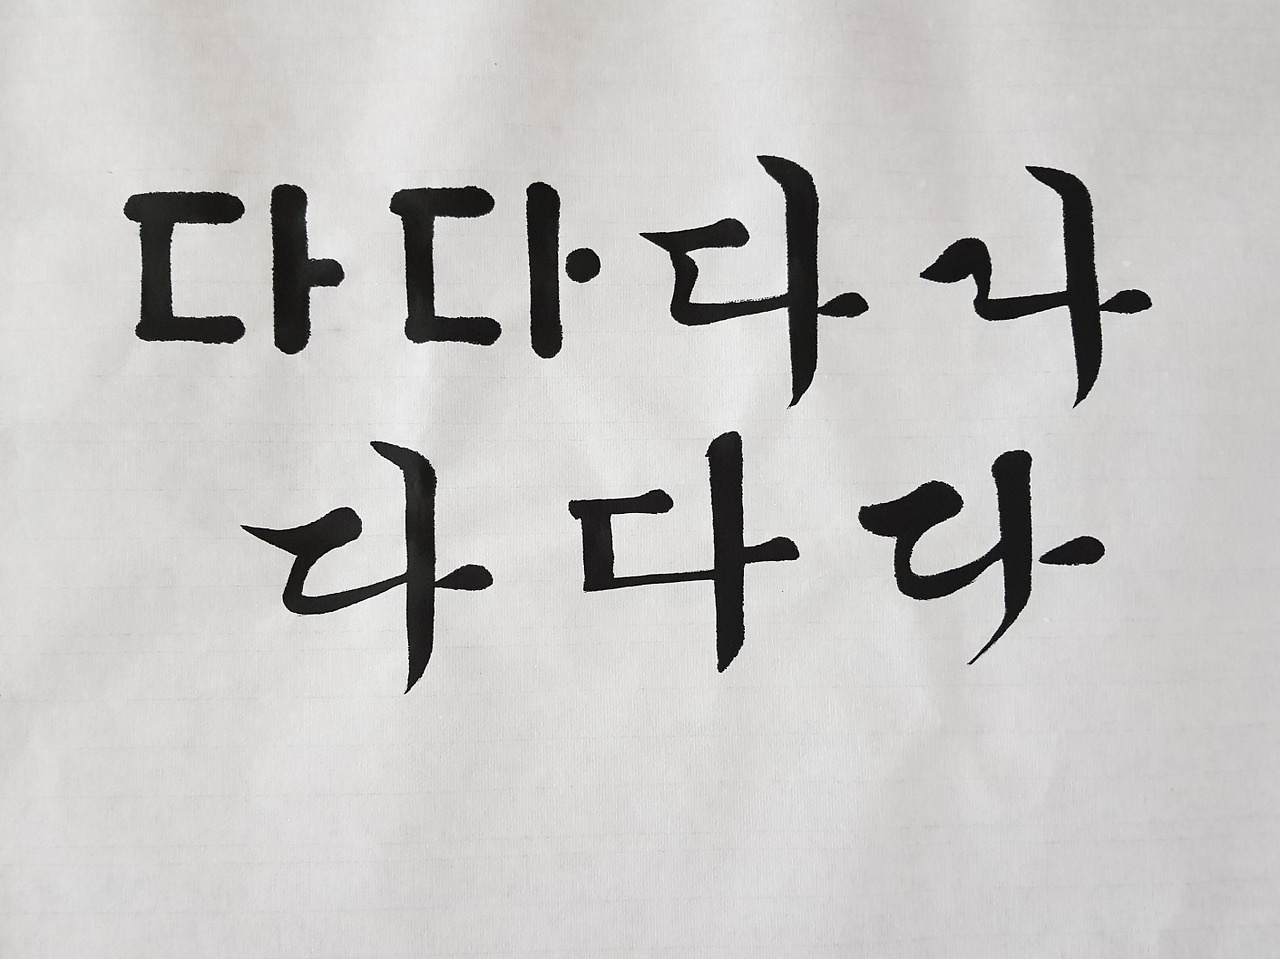 다 다 다 다
다 다 다